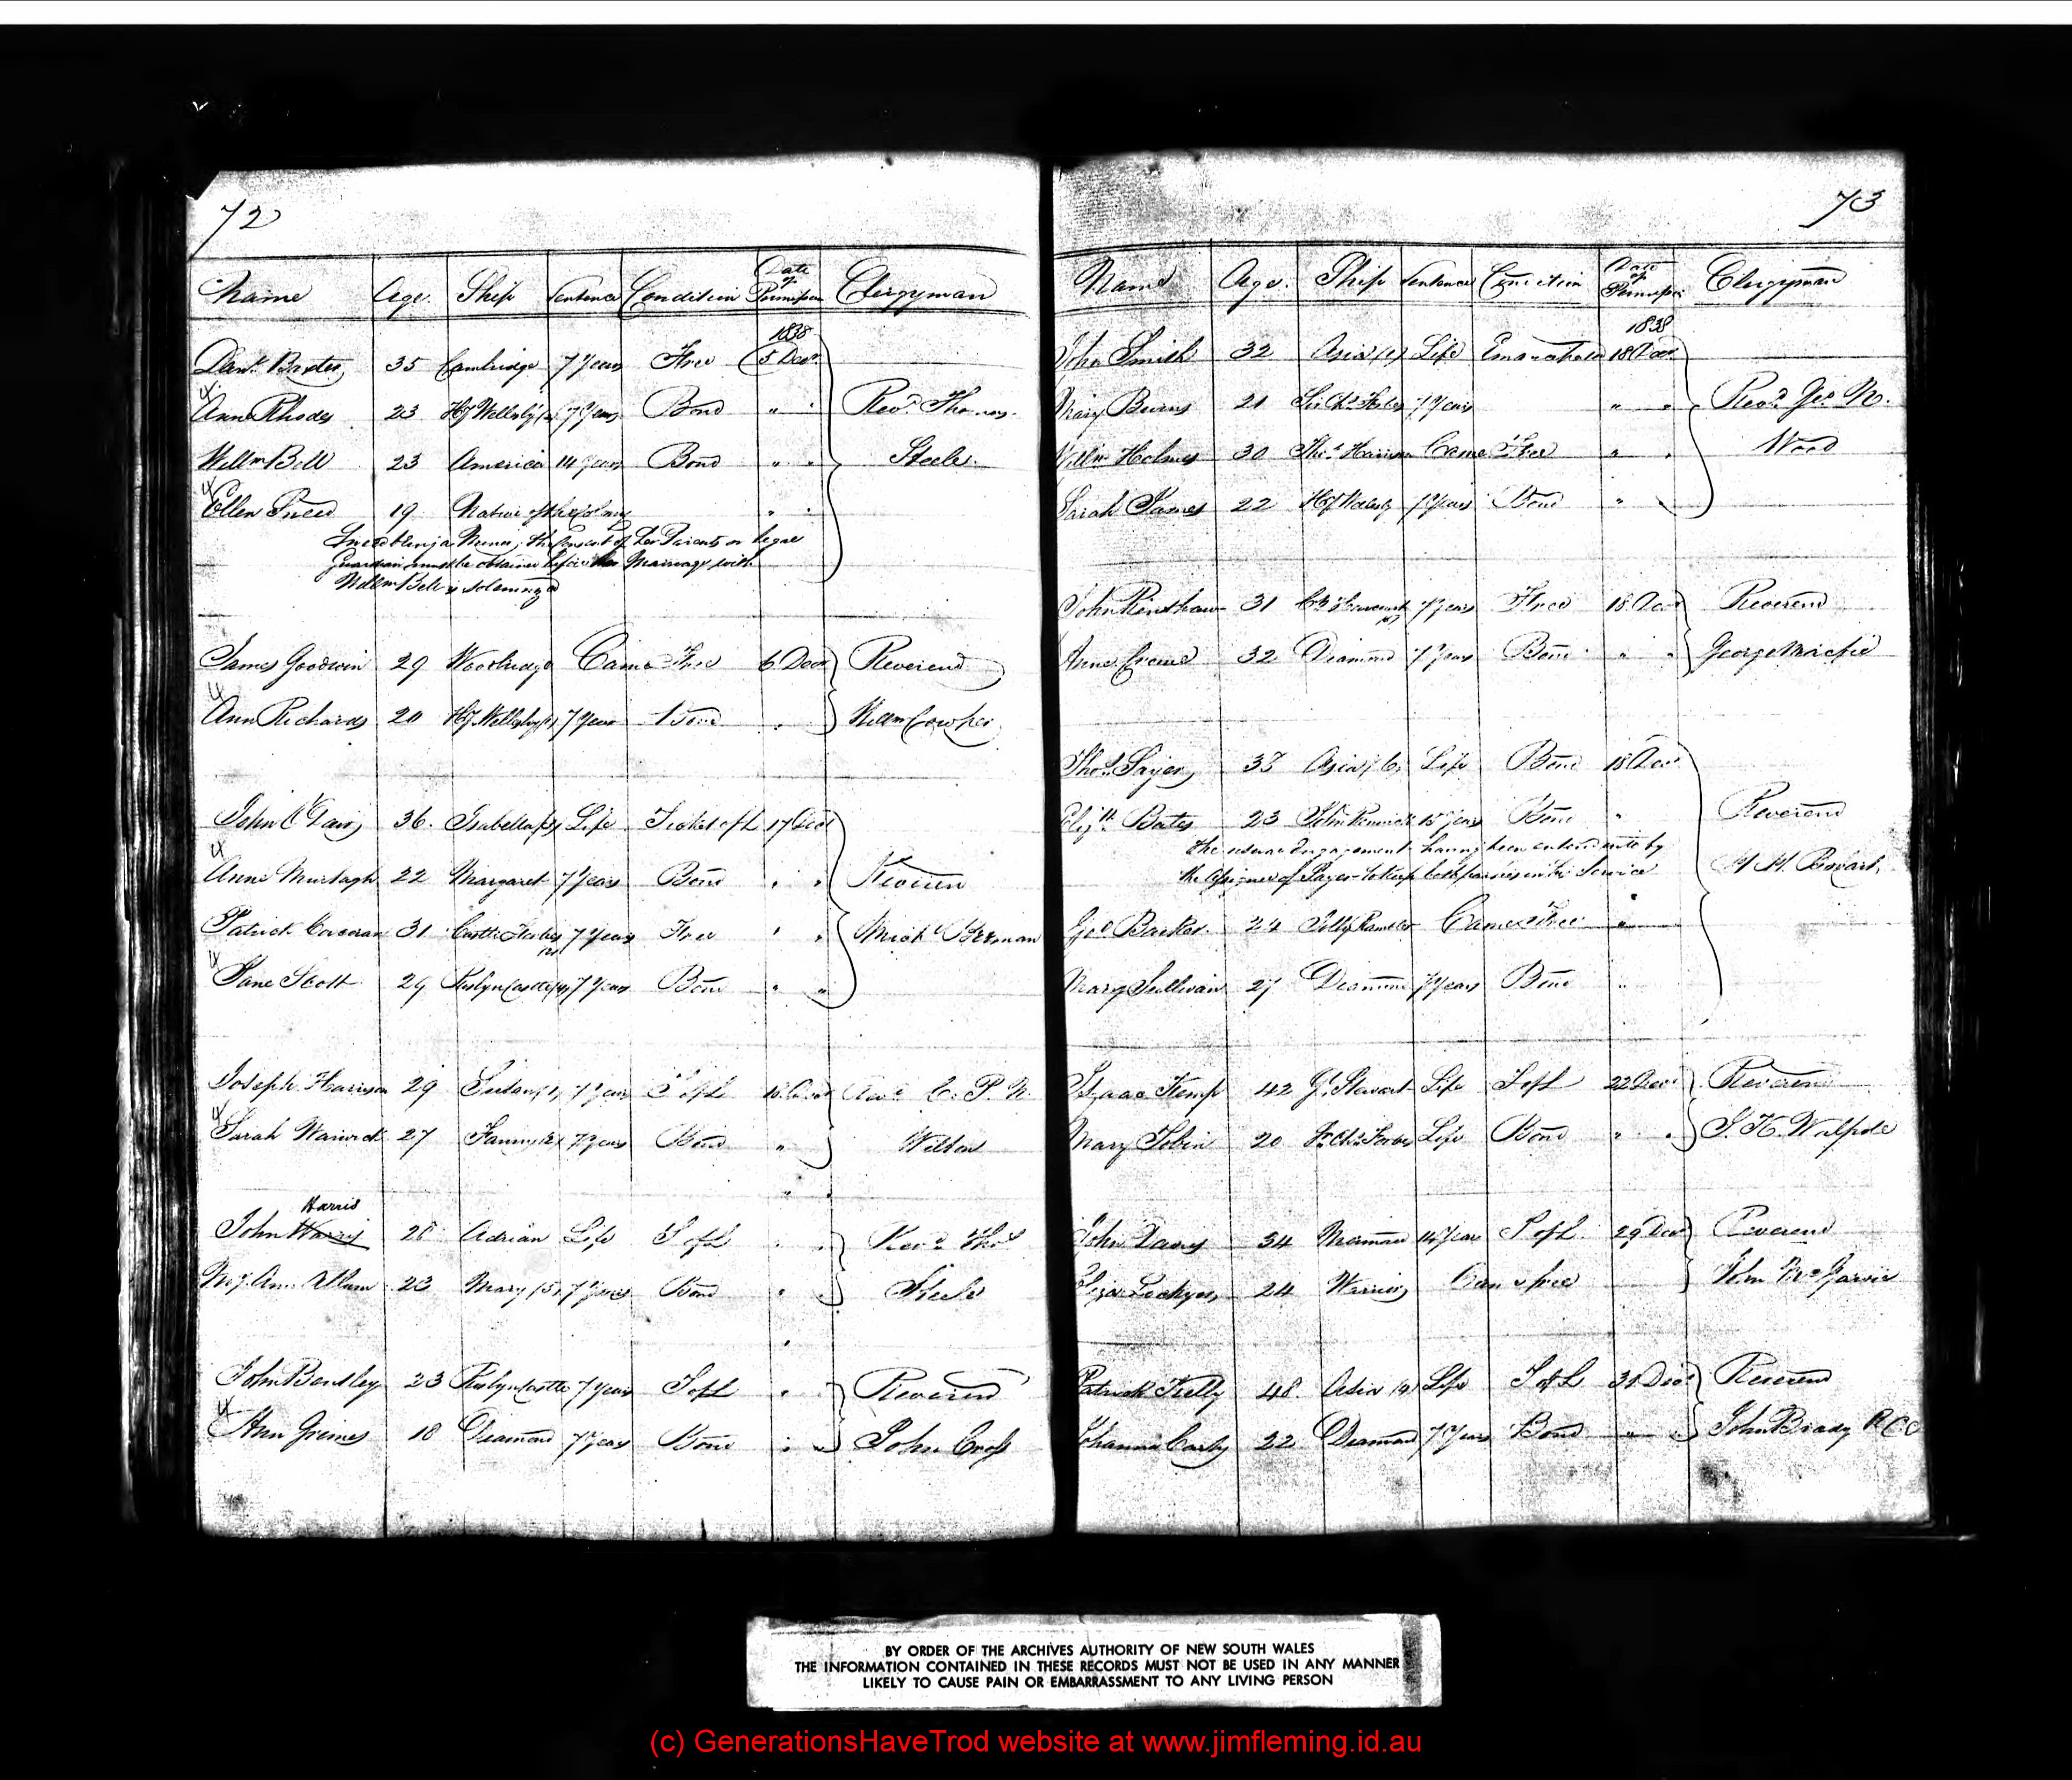 72
Name Age. Ship Sentence Condition Date of Permission Clergyman
1838
Danl. Baxter 35 Cambridge 7 Years Free 5 Decr.
Ann Rhodes 23 Hy Wellesley 7 Years Bond " " Revd. Thomas
Willm Bell 23 America 14 years Bond " " Steele
Ellen Sneed 19 Native of the Colony " "
Sneed being a Minor, the Consent of her Parents or legal
Guardian must be obtained before her Marriage with
Willm Bell is solemnized
James Goodwin 29 Woodbridge Came Free 6 Decr Reverend
Ann Richards 20 Hy Wellesley 7 Years Bond " Willm Cowper
John 36. Isabella Life Ticket of L 17 Decr
Anne Murtagh 22 Margaret 7 Years Bond " " Reverend
Patrick Corcoran 31 Castle Forbes 7 Years Free " " Michl Brennan
Jane Scott 29 Roslyn Castle 7 Years Bond " "
Joseph Harrison 29 7 Years T of L 18 Decr Revd C. P. N.
Sarah Warwick 27 Fanny 7 Years Bond " Wilton
Harris
John Harris 28 Adrian Life T of L " " Revd Thos
My. Ann Allum 23 Mary (5) 7 Years Bond " " Steele
John Bentley 23 Roslyn Castle 7 Years T of L " Reverend
Ann Grimes 18 Diamond 7 Years Bond " " John Cross
73
Name Age. Ship Sentence Condition Date of Permission Clergyman
1838
John Smith 32 Asia Life 18 Decr
Mary Burns 21 Sir Chs. Forbes 7 Years " " Revd. Geo N.
Willm Holmes 30 Thos. Harrison Came Free " " Wood
Sarah James 22 Hy Wellesley 7 Years Bond "
John Renshaw 31 7 Years Free 18 Decr Reverend
Anne 32 Diamond 7 Years Bond " " George
Thos. Sayer 38 Asia Life Bond 18 Decr
Elizth. Bates 23 John Renwick 15 years Bond " Reverend
the usual Engagement having been entered into by
the Assignee of Sayer to keep both parties in his Service
Geo Barker. 24 Came Free "
Mary Sullivan 27 Diamond 7 Years Bond "
Isaac Kemp 42 Gl. Stewart Life T of L 22 Decr Reverend
Mary Tobin 20 Sr. Chs. Forbes Life Bond " " J. K. Walpole
John Davis 34 Mermaid 14 Years T of L. 29 Decr Reverend
Eliza Lockyer 24 Warrior Came free John McGarvie
Patrick Kelly 48. Asia Life T of L 31 Decr Reverend
Johanna 22 Diamond 7 Years Bond " " John Brady R C C
BY ORDER OF THE ARCHIVES AUTHORITY OF NEW SOUTH WALES
THE INFORMATION CONTAINED IN THESE RECORDS MUST NOT BE USED IN ANY MANNER
LIKELY TO CAUSE PAIN OR EMBARRASSMENT TO ANY LIVING PERSON
(c) GenerationsHaveTrod website at www.jimfleming.id.au